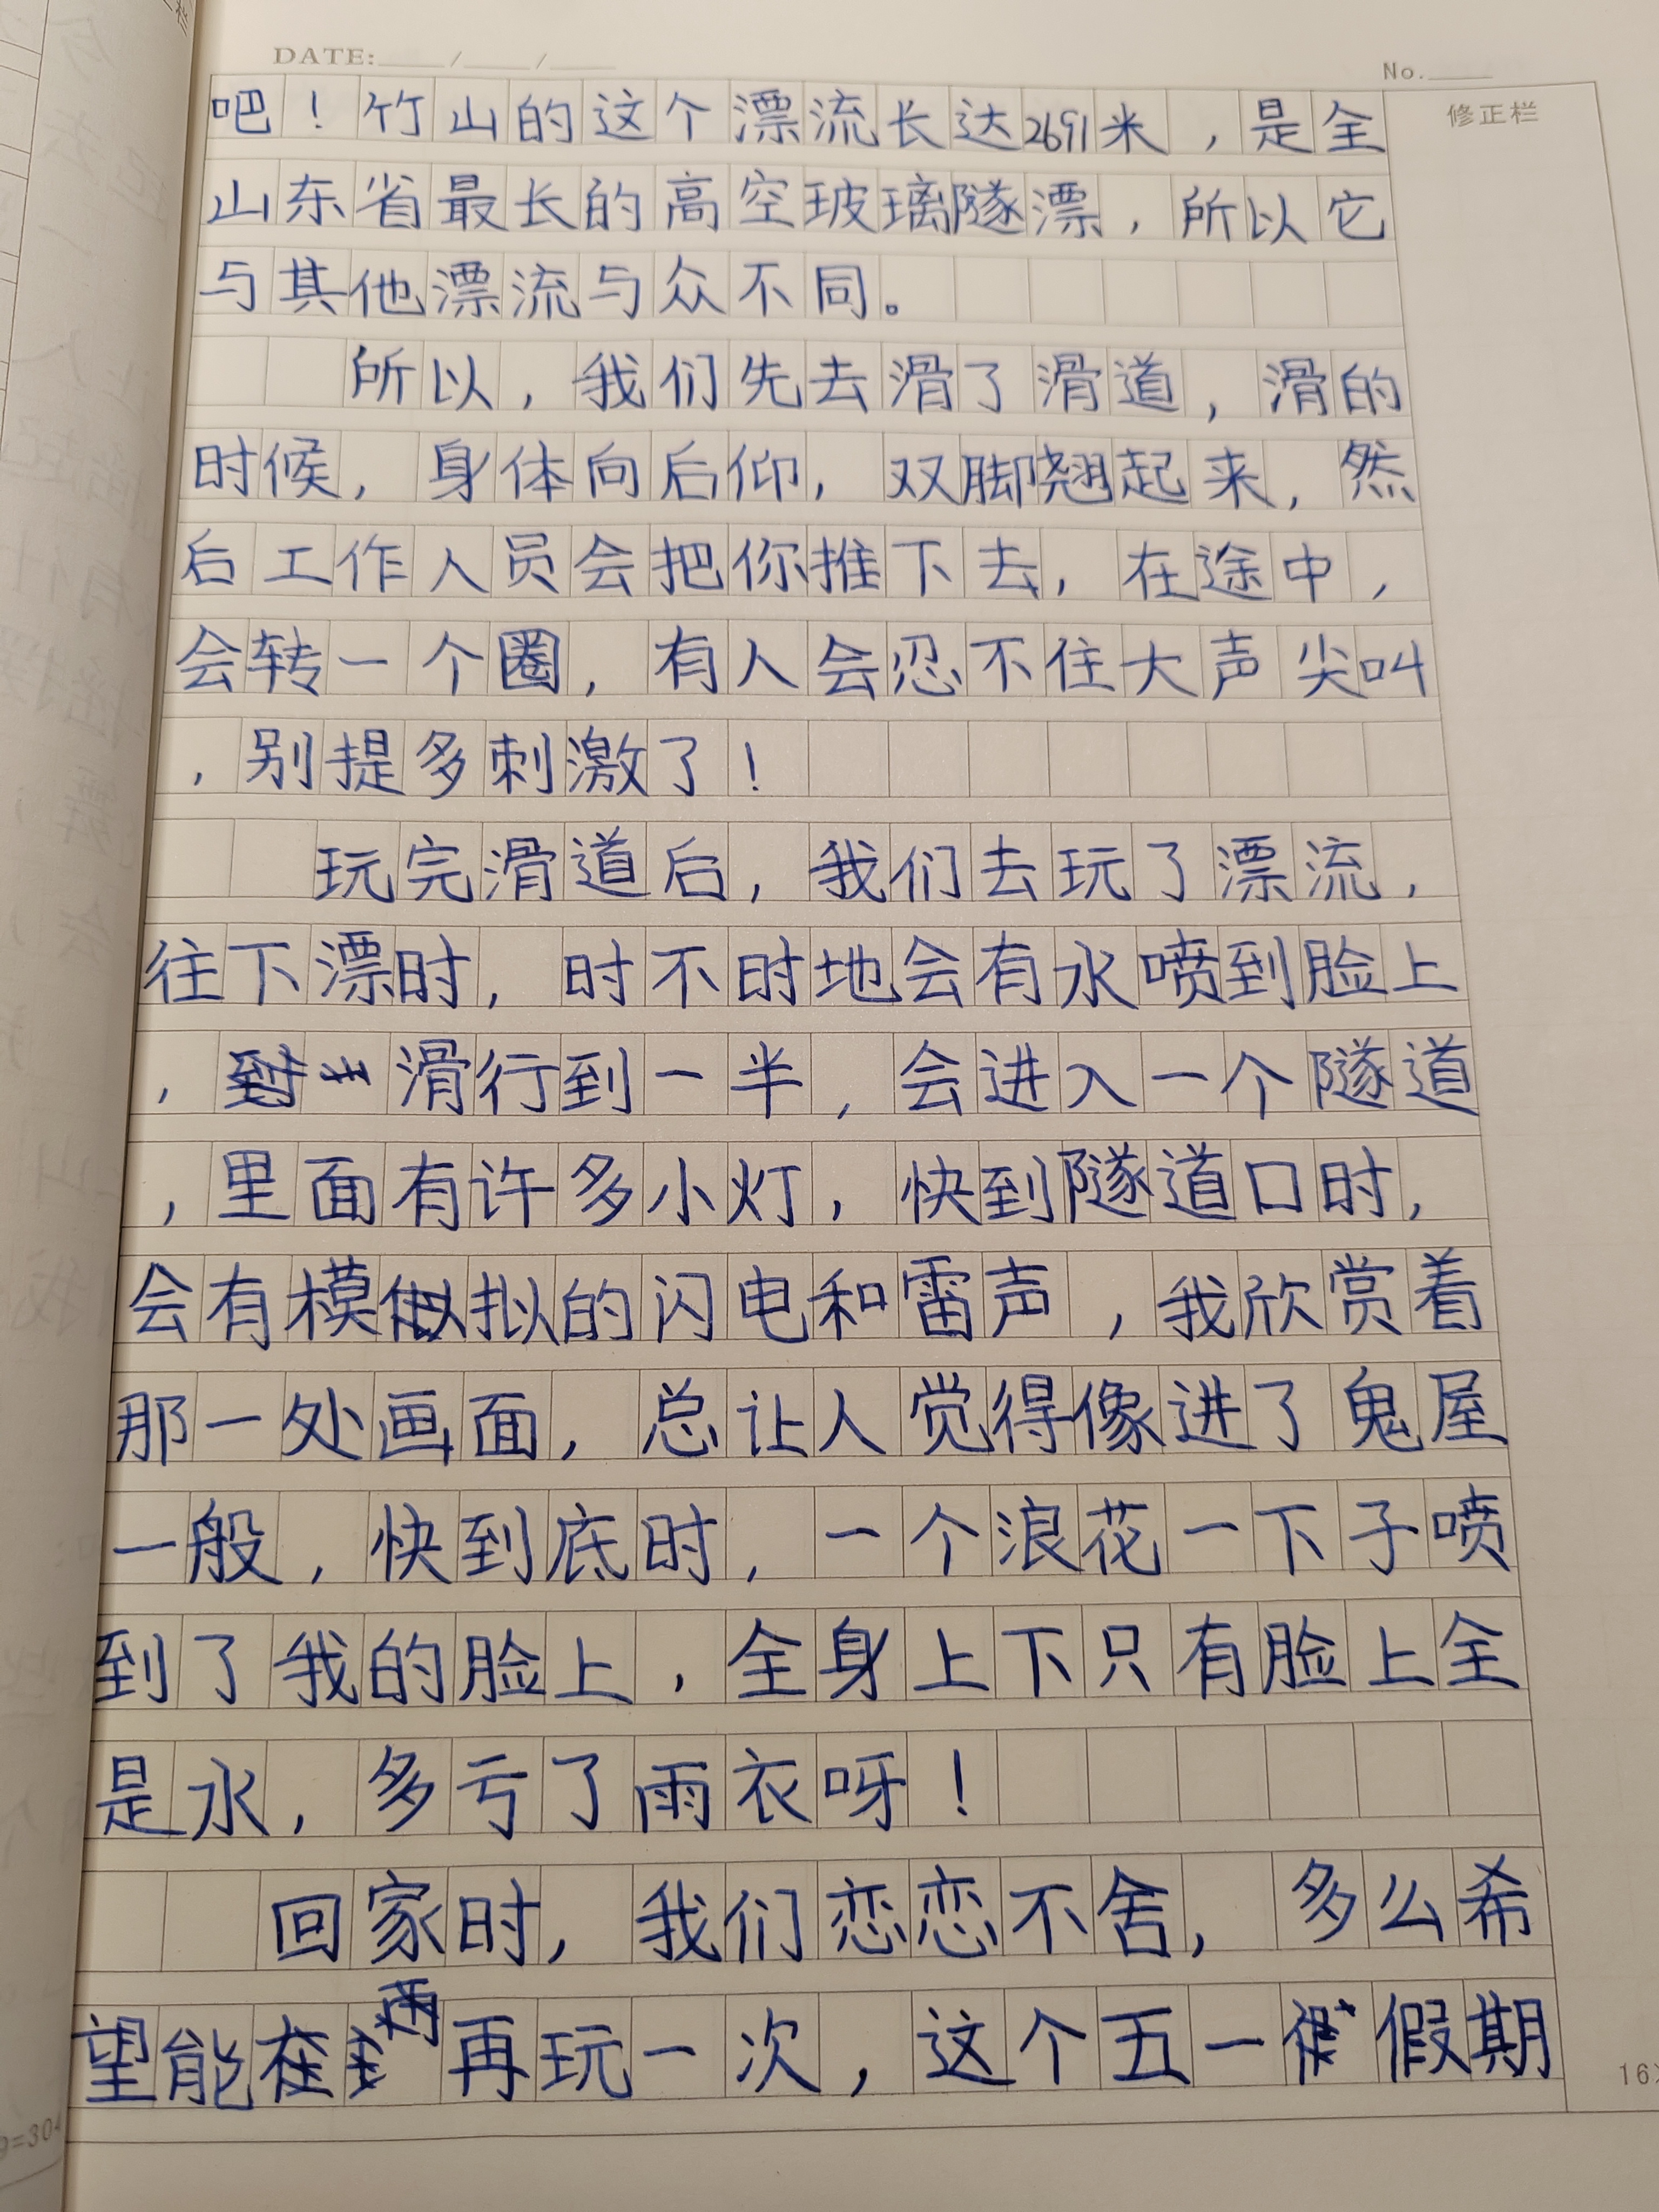 DATE: / /
No.
修正栏
吧！竹山的这个漂流长达2691米，是全
山东省最长的高空玻璃隧漂，所以它
与其他漂流与众不同。
所以，我们先去滑了滑道，滑的
时候，身体向后仰，双脚翘起来，然
后工作人员会把你推下去，在途中，
会转一个圈，有人会忍不住大声尖叫
，别提多刺激了！
玩完滑道后，我们去玩了漂流，
往下漂时，时不时地会有水喷到脸上
，滑行到一半，会进入一个隧道
，里面有许多小灯，快到隧道口时，
会有模拟的闪电和雷声，我欣赏着
那一处画面，总让人觉得像进了鬼屋
一般，快到底时，一个浪花一下子喷
到了我的脸上，全身上下只有脸上全
是水，多亏了雨衣呀！
回家时，我们恋恋不舍，多么希
望能再玩一次，这个五一假期